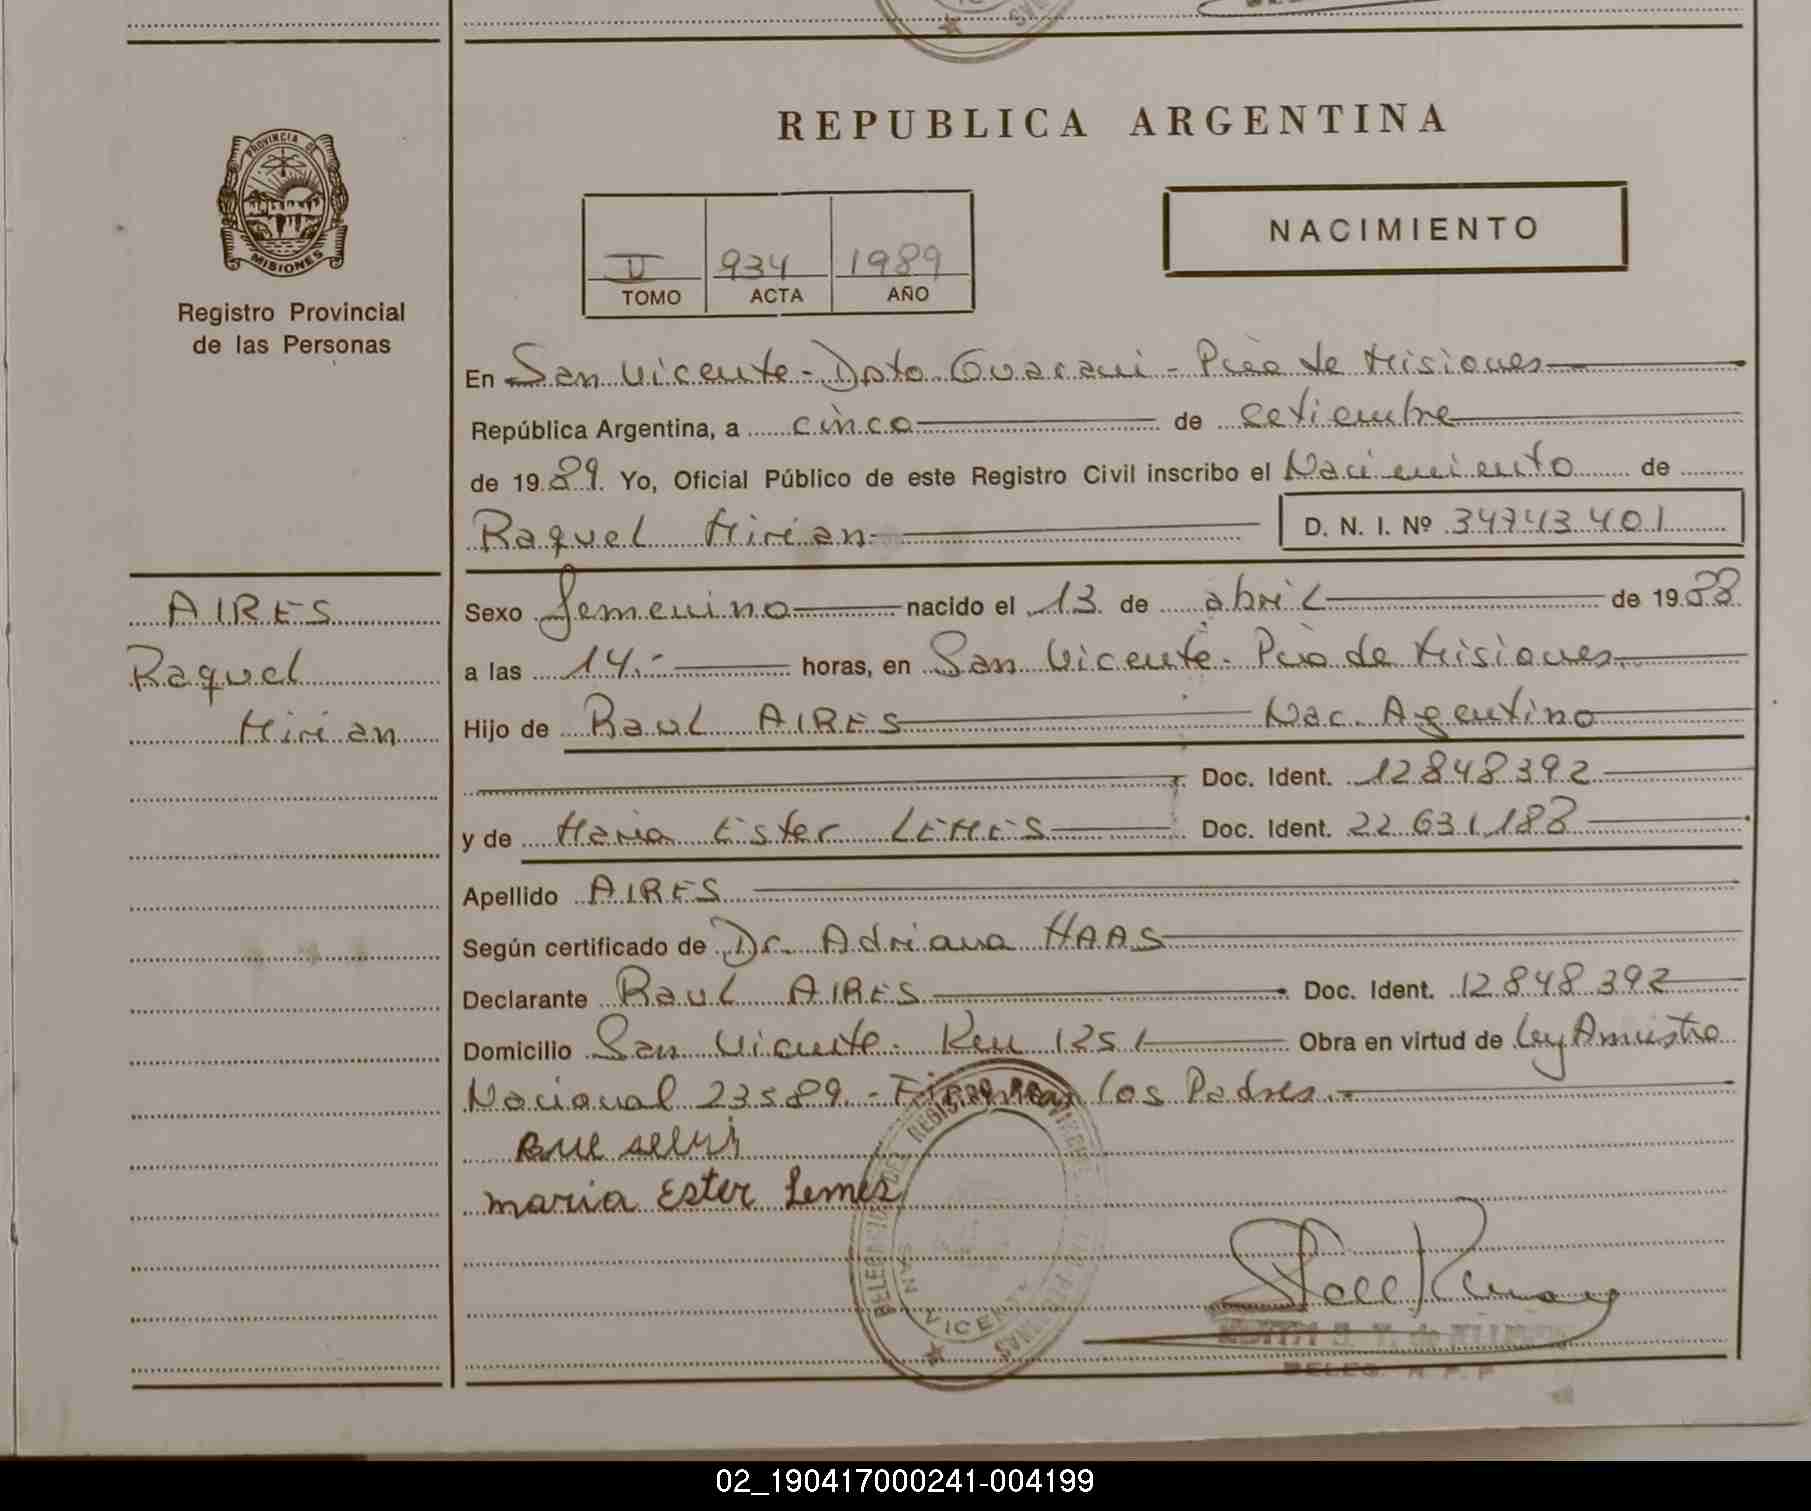 REPUBLICA ARGENTINA
PROVINCIA DE
MISIONES
Registro Provincial
de las Personas
NACIMIENTO
II 934 1989
TOMO ACTA AÑO
En San Vicente - Dpto Guarani - Pcia de Misiones
República Argentina, a cinco de setiembre
de 1989. Yo, Oficial Público de este Registro Civil inscribo el Nacimiento de
Raquel Mirian D. N. I. Nº 34743401
AIRES
Raquel
Mirian
Sexo femenino nacido el 13 de abril de 1988
a las 14.- horas, en San Vicente - Pcia de Misiones
Hijo de Raul AIRES Nac. Agentino
Doc. Ident. 12848392
y de Maria Ester LEMES Doc. Ident. 22.631.188
Apellido AIRES
Según certificado de Dr. Adriana HAAS
Declarante Raul AIRES Doc. Ident. 12848392
Domicilio San Vicente - Km 1251 Obra en virtud de Ley Amnistia
Nacional 23589.- Firman los Padres.-
maria Ester Lemes
DELEGACION DEL REGISTRO PROVINCIAL DE LAS PERSONAS
SAN VICENTE
DELEG. R. P. P.
02_190417000241-004199